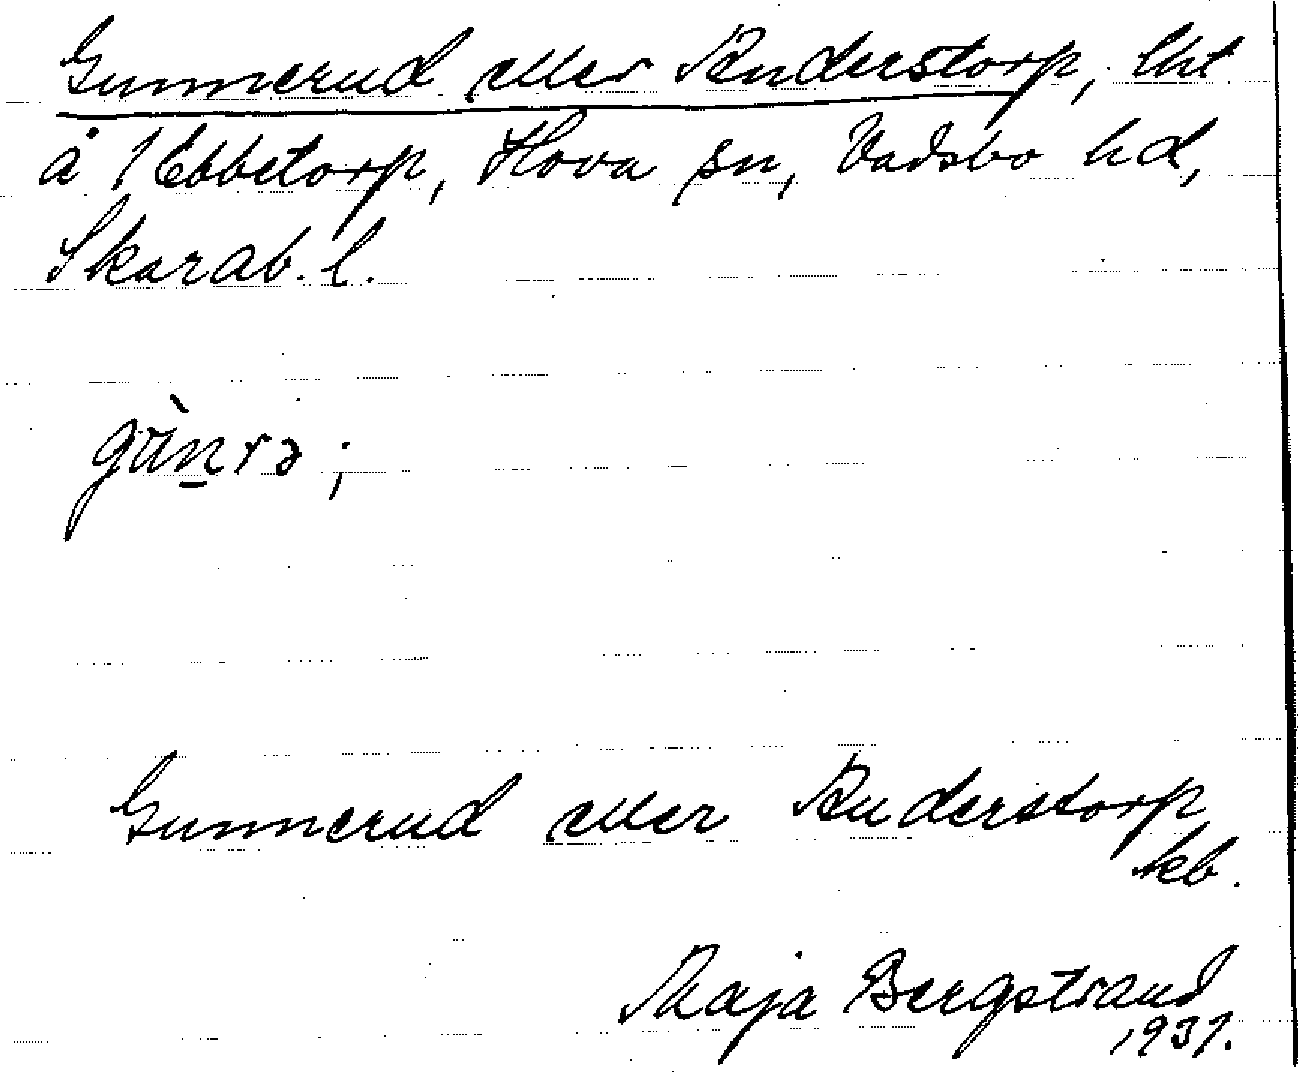 Gunnerud eller Anderstorp, lht
å 1 Ebbetorp, Hova sn, Vadsbo hd,
Skarab. l.
gùnrə ;
Gunnerud eller Anderstorp
kb.
Maja Bergstrand
1937.